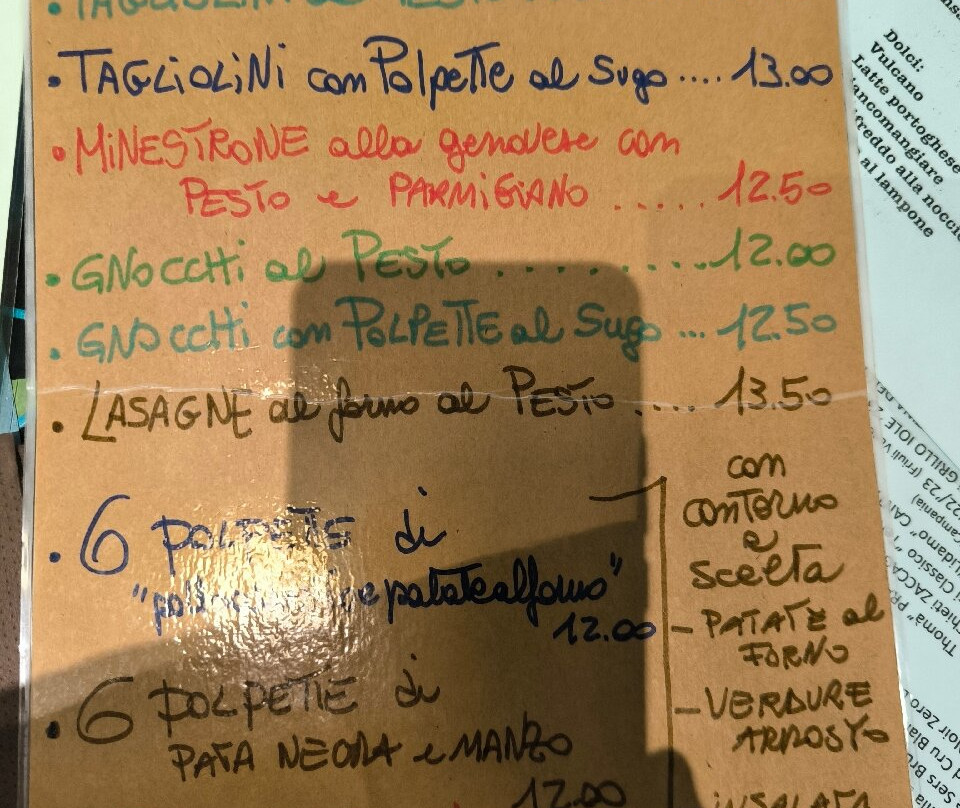 • TAGLIOLINI con Polpette al Sugo .... 13.00
• MINESTRONE alla genovese con
PESTO e PARMIGIANO ..... 12.50
• GNOCCHI al PESTO ......... 12.00
• GNOCCHI con POLPETTE al Sugo ... 12.50
• LASAGNE al forno al PESTO .... 13.50
• 6 POLPETTE di
e patate al forno"
12.00
• 6 POLPETTE di
PATA NEGRA e MANZO
12.00
con
contorno
a
scelta
- PATATE al
FORNO
- VERDURE
ARROSTO
INSALATA
Dolci:
Vulcano
Latte portoghese
ancomangiare
freddo alla noccio
al lampone
GRILLO IOLE
Thoma"